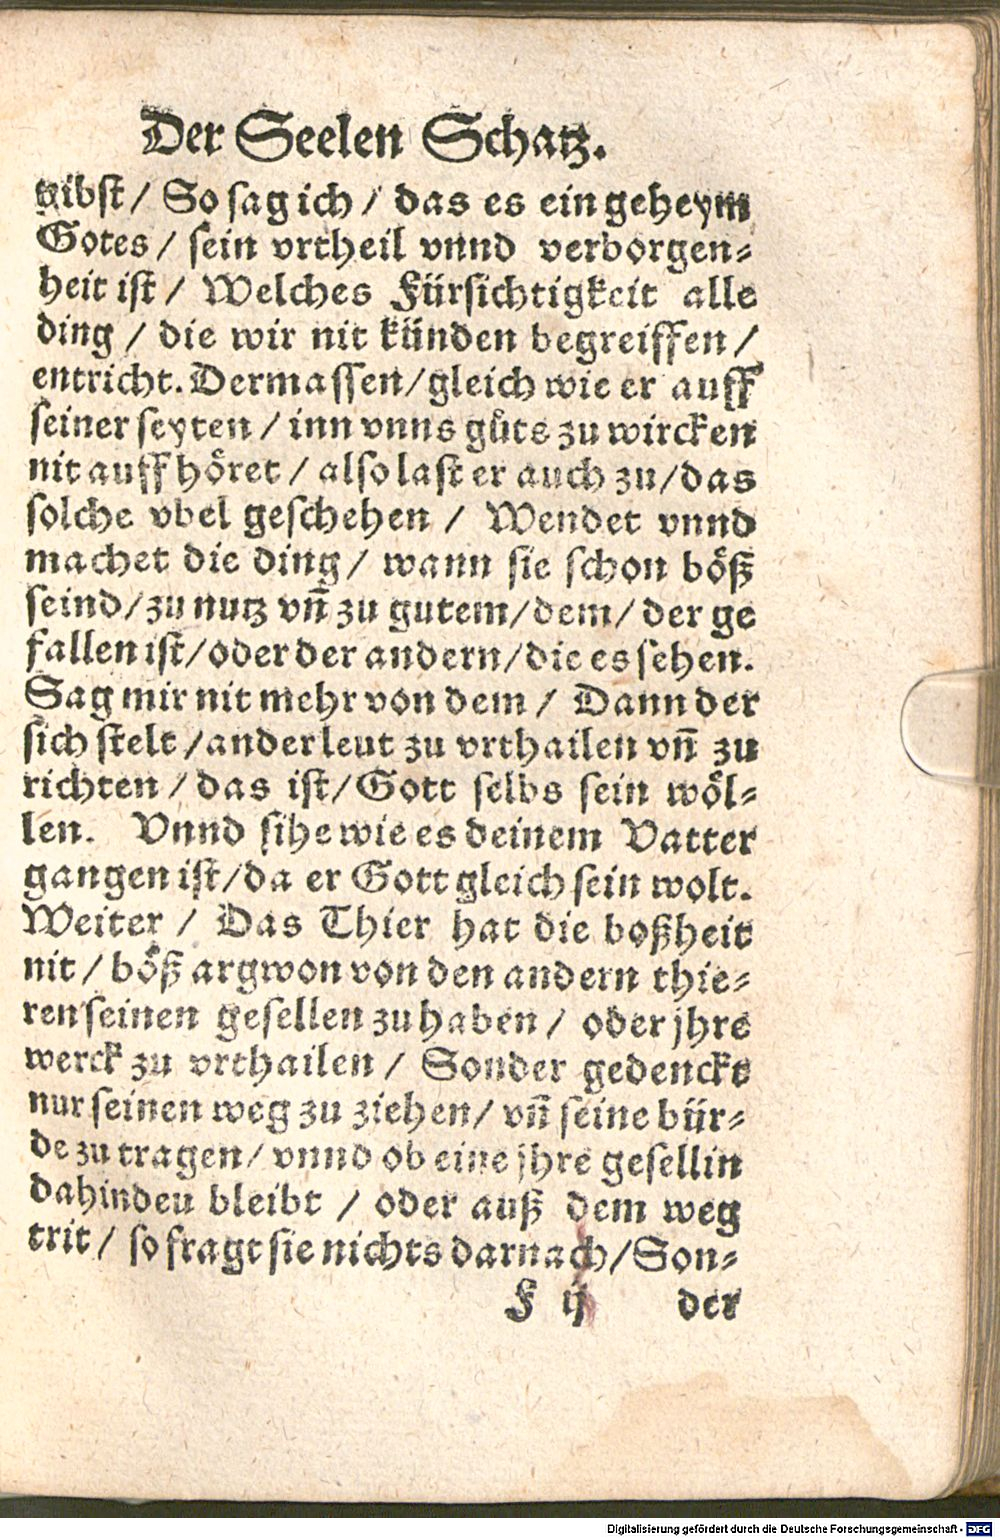 Der Seelen Schatz.
gibst / So sag ich / das es ein geheym
Gotes / sein vrtheil vnnd verborgen-
heit ist / Welches Fürsichtigkeit alle
ding / die wir nit künden begreiffen /
entricht. Dermassen / gleich wie er auff
seiner seyten / inn vnns gůts zu wircken
nit auffhöret / also last er auch zu / das
solche vbel geschehen / Wendet vnnd
machet die ding / wann sie schon böß
seind / zu nutz vñ zu gutem / dem / der ge
fallen ist / oder der andern / die es sehen.
Sag mir nit mehr von dem / Dann der
sich stelt / ander leut zu vrthailen vñ zu
richten / das ist / Gott selbs sein wöl-
len. Vnnd sihe wie es deinem Vatter
gangen ist / da er Gott gleich sein wolt.
Weiter / Das Thier hat die boßheit
nit / böß argwon von den andern thie-
ren seinen gesellen zu haben / oder jhre
werck zu vrthailen / Sonder gedenckt
nur seinen weg zu ziehen / vñ seine bür-
de zu tragen / vnnd ob eine jhre gesellin
dahinden bleibt / oder auß dem weg
trit / so fragt sie nichts darnach / Son-
F ij der
Digitalisierung gefördert durch die Deutsche Forschungsgemeinschaft - DFG